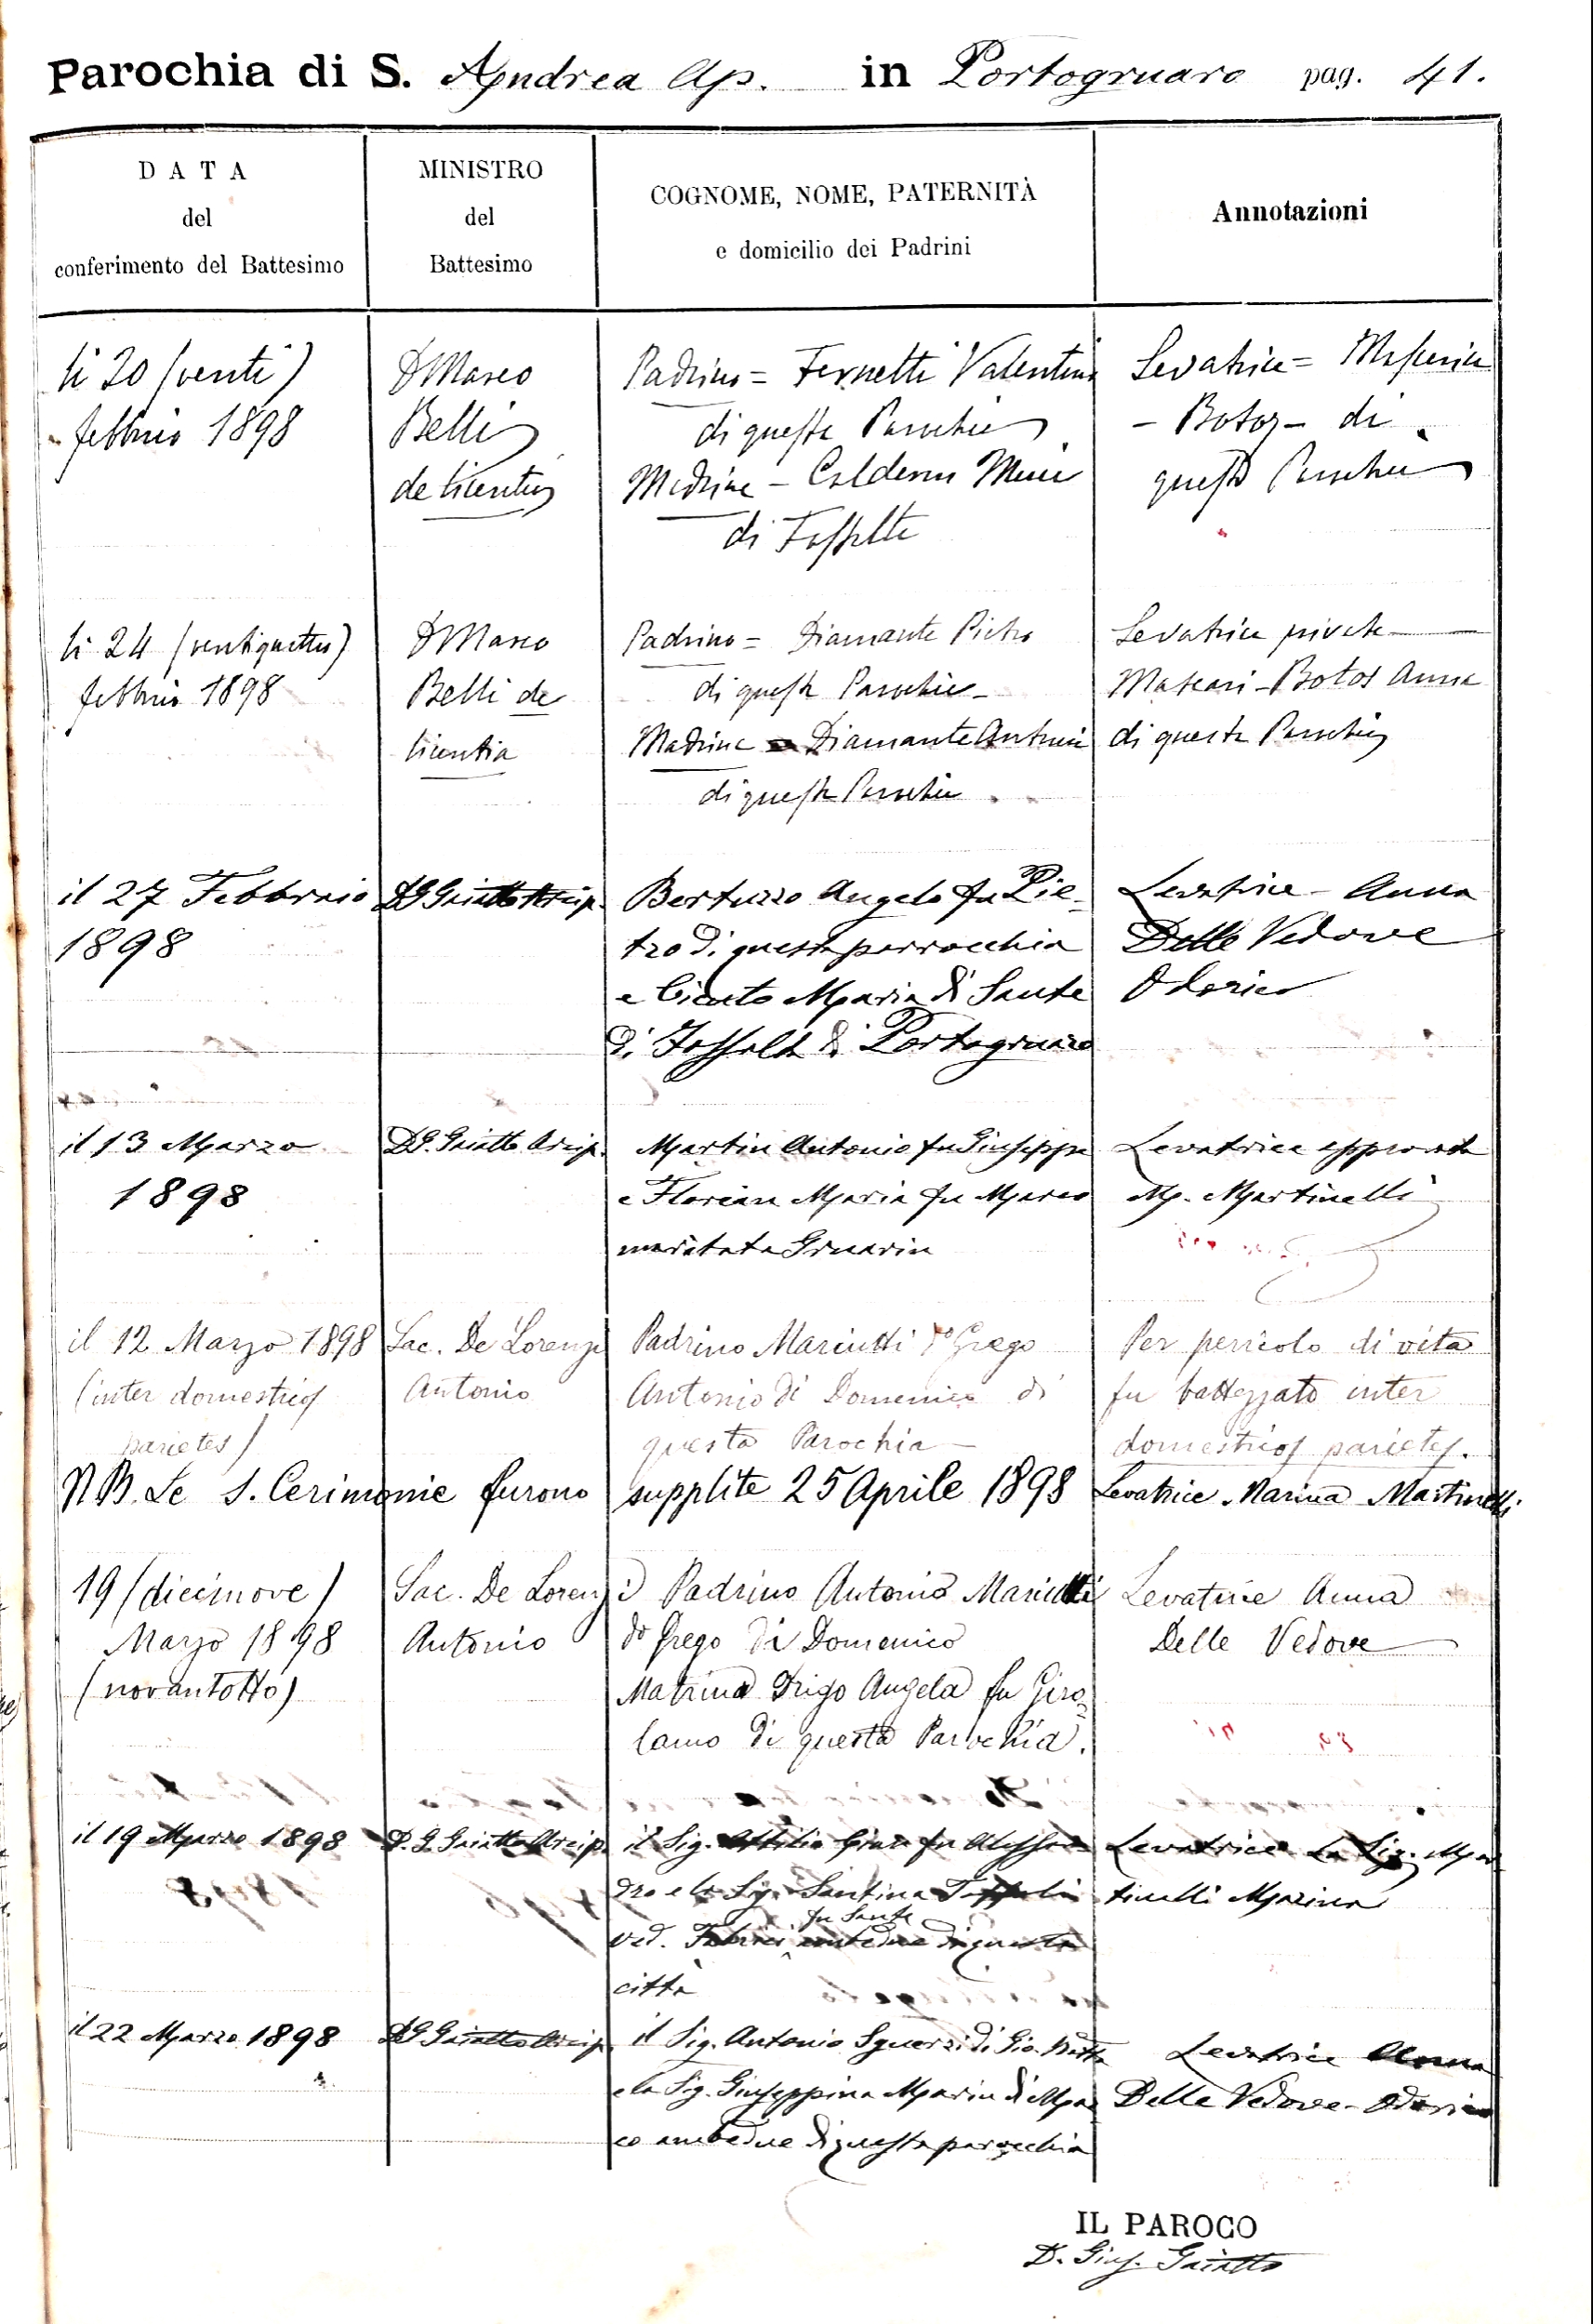 Parochia di S. Andrea Ap. in Portogruaro pag. 41.
DATA
del
conferimento del Battesimo
MINISTRO
del
Battesimo
COGNOME, NOME, PATERNITÀ
e domicilio dei Padrini
Annotazioni
li 20 (venti)
febbrio 1898
D Marco
Belli
de licentia
Padrino = Fernetti Valentino
di questa Parochia
Madrina -
di
Levatrice =
- Botos - di
questa Parochia
li 24 (ventiquattro)
febbrio 1898
D Marco
Belli de
licentia
Padrino = Diamante Pietro
di questa Parochia -
Madrina = Diamante Antonia
di questa Parochia
Levatrice privata
Mascari - Botos Anna
di questa Parochia
il 27 Febbraio
1898
D G Gaiatto Arcip.
Bertuzzo Angelo fu Pie-
tro di questa parrocchia
e Maria di Sante
di Fossalta di Portogruaro
Levatrice - Anna
Delle Vedove
Odorico
il 13 Marzo
1898
D G. Gaiatto Arcip.
Martin Antonio fu Giuseppe
e Florian Maria fu Marco
maritata Gruarin
Levatrice approvata
M. Martinelli
il 12 Marzo 1898
(inter domesticos
parietes)
Sac. De Lorenzi
Antonio
Padrino Mariutti do Grego
Antonio di Domenico di
questa Parochia -
Per pericolo di vita
fu battezzato inter
domesticos parietes.
N B. Le S. Cerimonie furono supplite 25 Aprile 1898
Levatrice - Marina Martinelli
19 (diecinove)
Marzo 1898
(novantotto)
Sac. De Lorenzi
Antonio
Padrino Antonio Mariutti
do Grego di Domenico
Matrina Drigo Angela fu Giro-
lamo di questa Parochia.
Levatrice Anna
Delle Vedove
il 19 Marzo 1898
D. G. Gaiatto Arcip.
il Sig. Attilio fu Alessan
dro e la Sig. Santina
fu Sante
ved. ambedue di questa
città
Levatrice la Sig. Mar
tinelli Marina
il 22 Marzo 1898
D G Gaiatto Arcip.
il Sig. Antonio di Gio. Batta
e la Sig. Giuseppina Marin di Mar
co ambedue di questa parocchia
Levatrice Anna
Delle Vedove - Odorico
IL PAROCO
D. Gius. Gaiatto